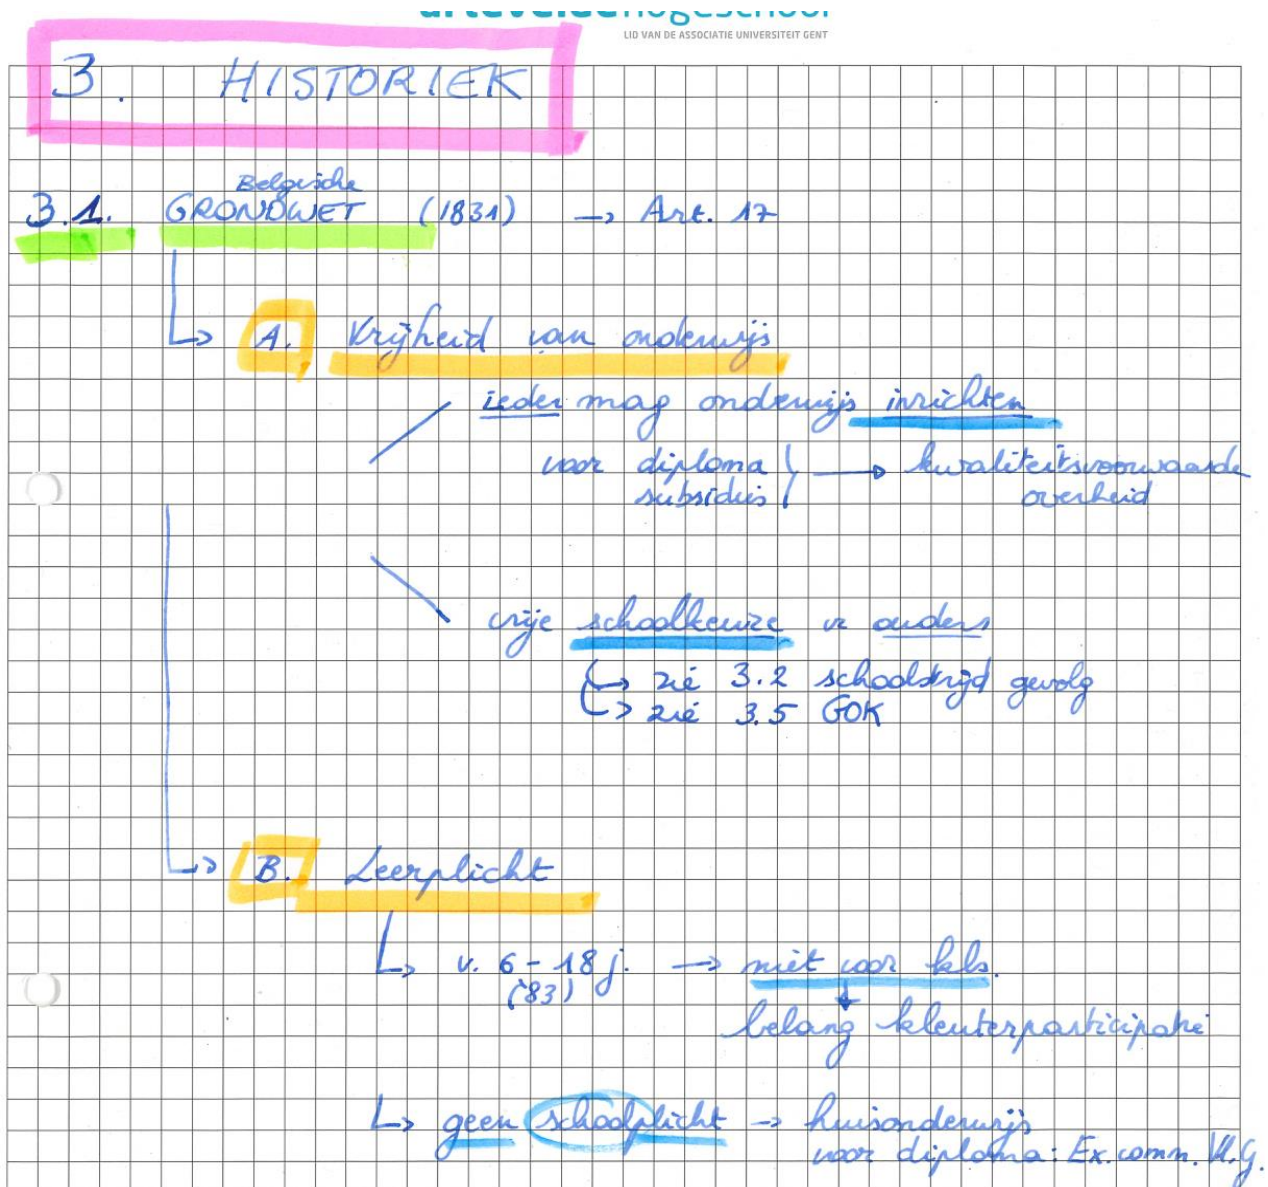 artevelde hogeschool
LID VAN DE ASSOCIATIE UNIVERSITEIT GENT
3. HISTORIEK
3.1. Belgische GRONDWET (1831) → Art. 17
A. Vrijheid van onderwijs
ieder mag onderwijs inrichten
voor diploma → kwaliteitsvoorwaarde
subsidies overheid
vrije schoolkeuze vr ouders
→ zie 3.2 schoolstrijd gevolg
→ zie 3.5 GOK
B. Leerplicht
v. 6-18 j. → niet voor kls.
('83)
belang kleuterparticipatie
geen schoolplicht → huisonderwijs
voor diploma: Ex. comm. Vl. G.